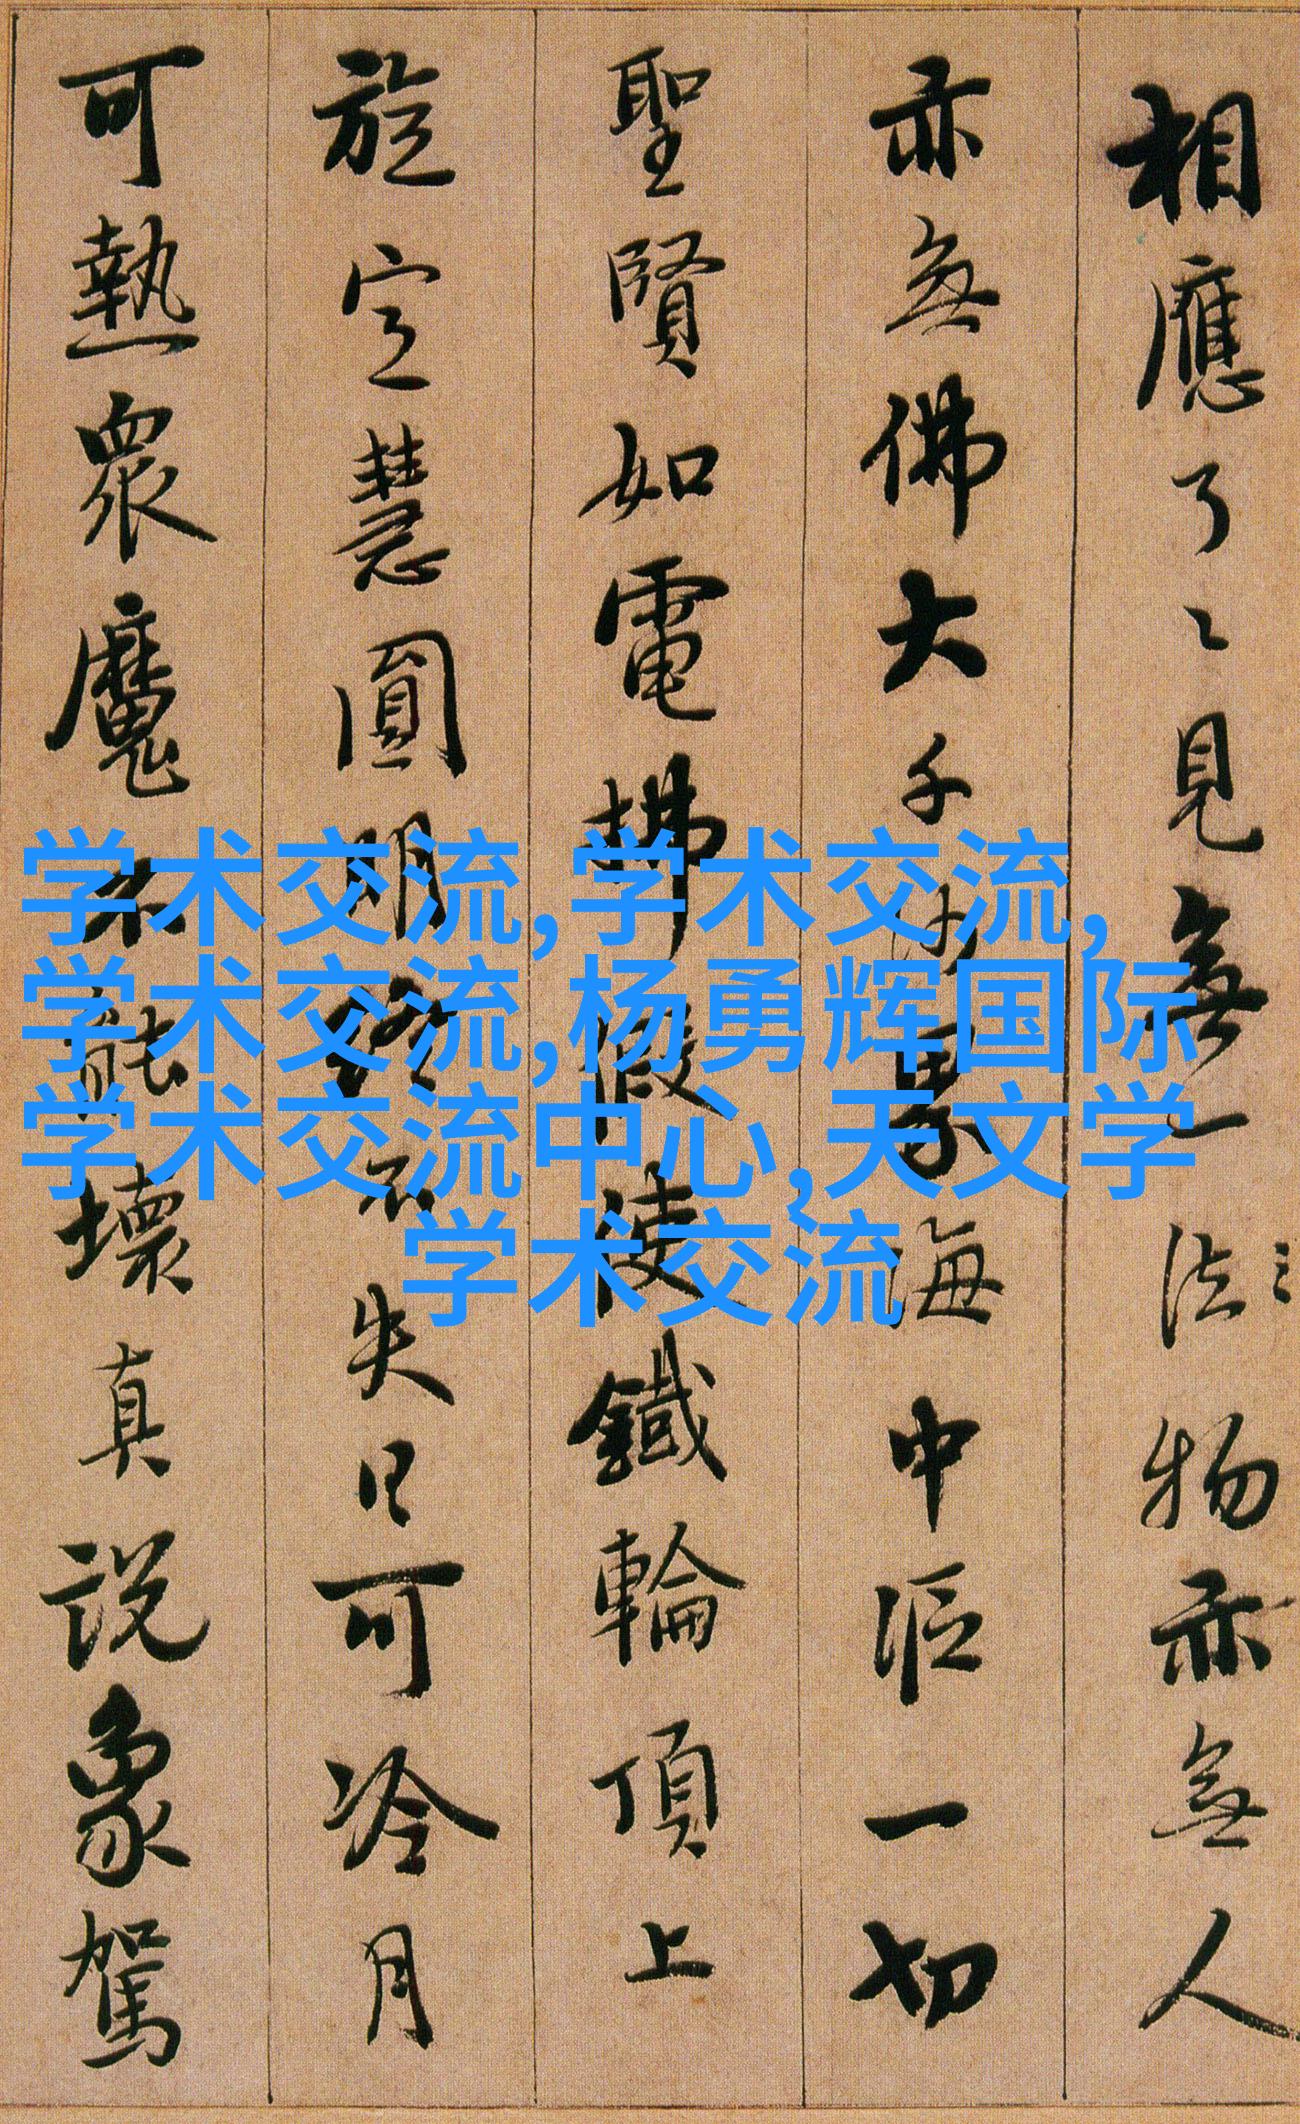 相應了々見無一法物亦無人
亦無佛大千沙界海中漚一切
聖賢如電拂假使鐵輪頂上
旋定慧圓明終不失日可冷月
可熱衆魔不能壞真説象駕
学术交流,学术交流,
学术交流,杨勇辉国际
学术交流中心,天文学
学术交流